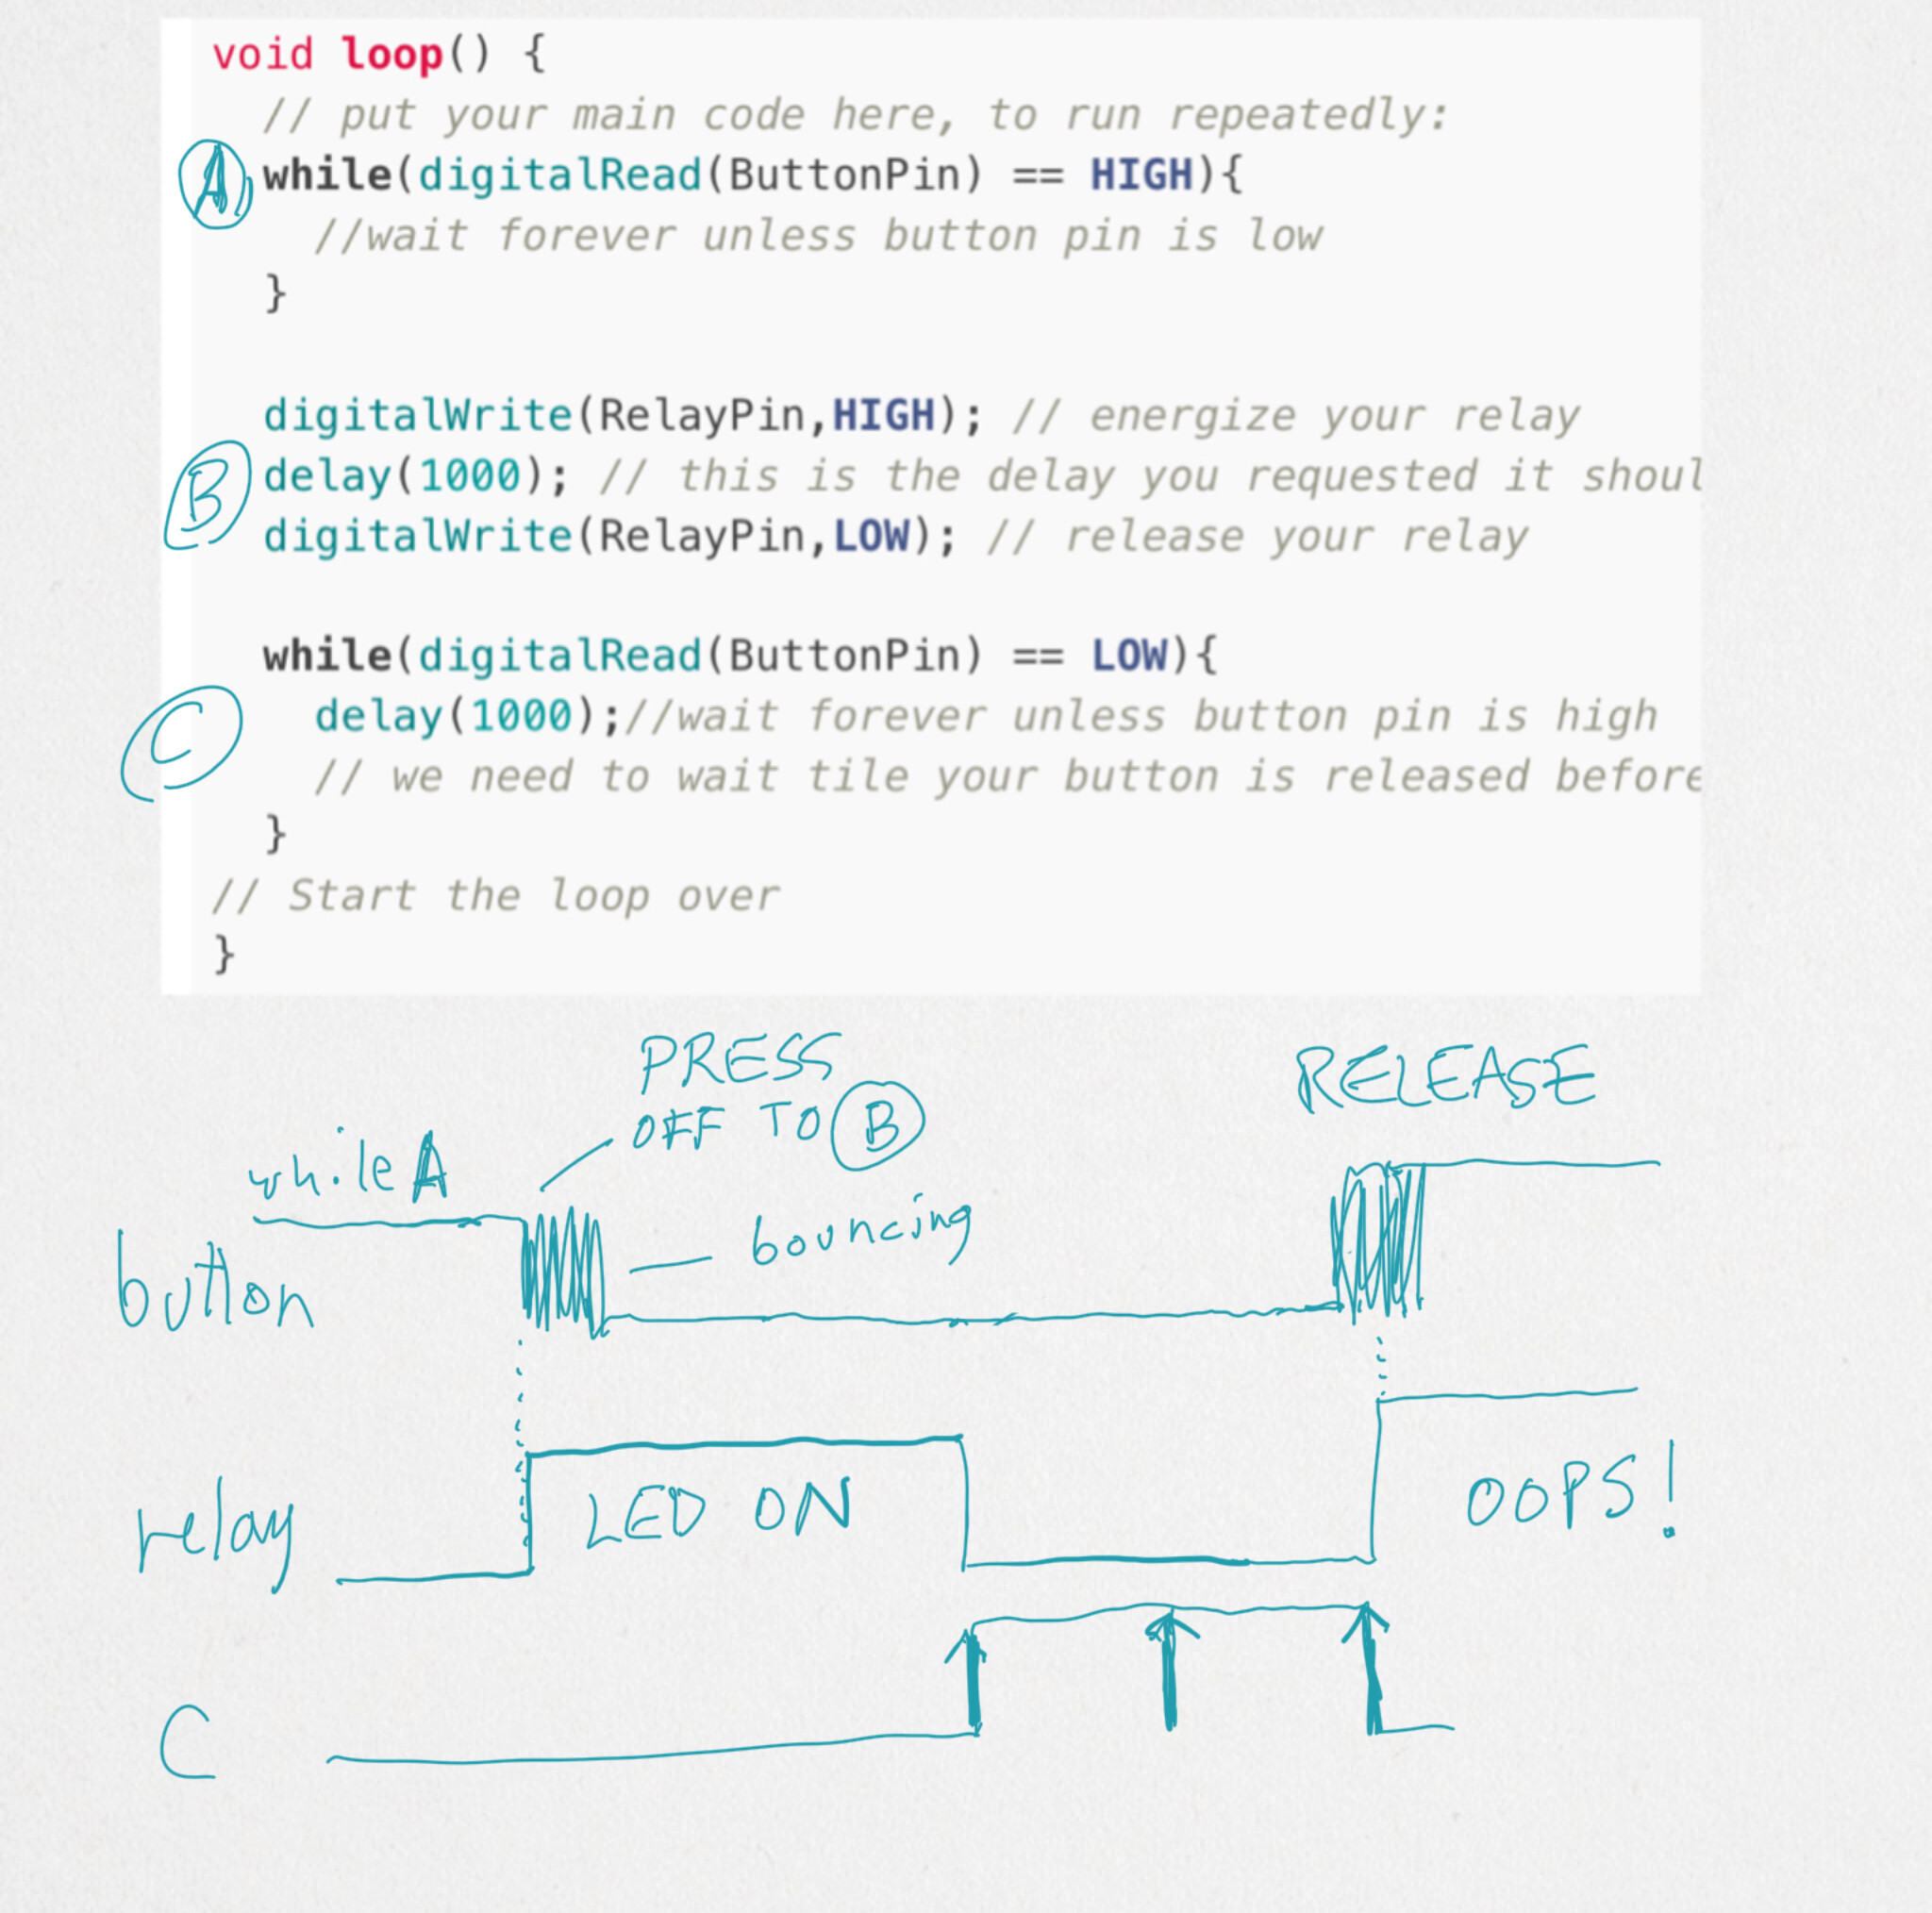 void loop() {
// put your main code here, to run repeatedly:
A while(digitalRead(ButtonPin) == HIGH){
//wait forever unless button pin is low
}
digitalWrite(RelayPin,HIGH); // energize your relay
B delay(1000); // this is the delay you requested it shoul
digitalWrite(RelayPin,LOW); // release your relay
while(digitalRead(ButtonPin) == LOW){
C delay(1000);//wait forever unless button pin is high
// we need to wait tile your button is released before
}
// Start the loop over
}
PRESS
OFF TO B
RELEASE
while A
bouncing
button
LED ON
OOPS!
relay
C